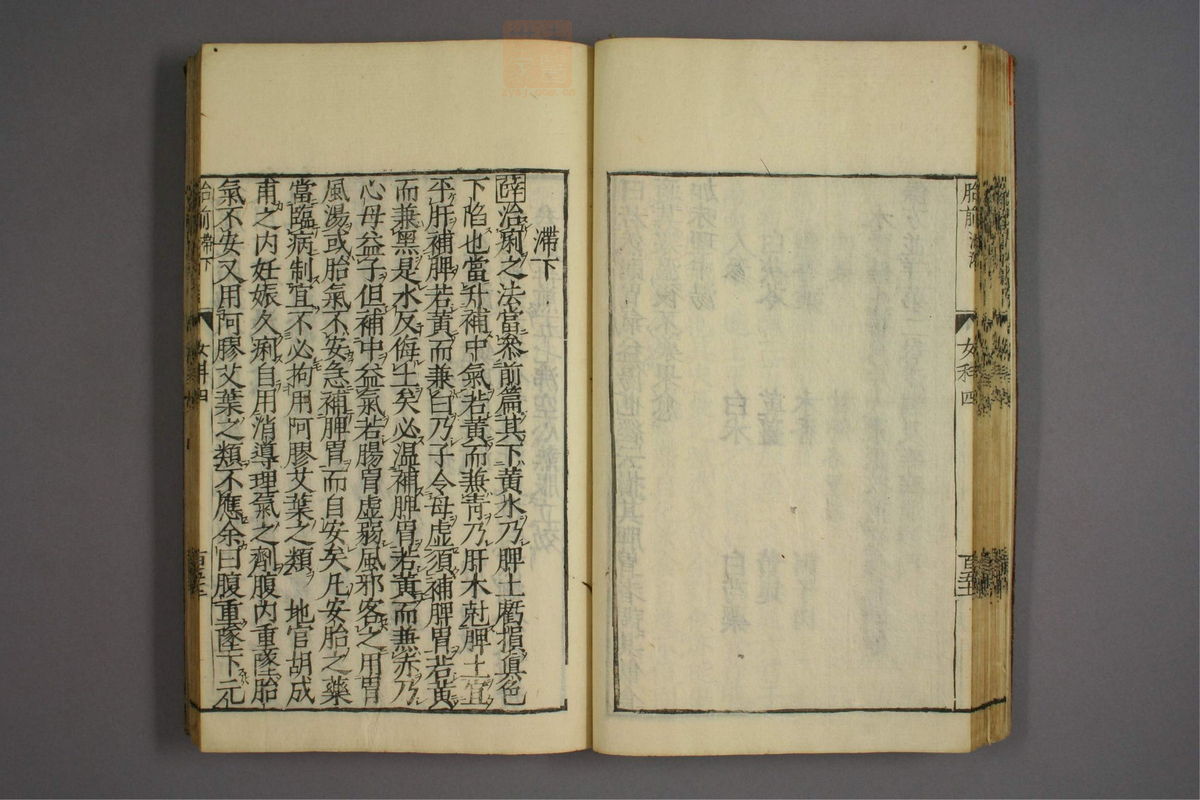 胎前
女科四
滯下
薛治痢之法當叅前篇其下黃水乃脾土虧損真氣
下陷也當升補中氣若黃而兼青乃肝木尅脾土宜
平肝補脾若黃而兼白乃子令母虛須補脾胃若黃
而兼黑是水反侮土矣必温補脾胃若黃而兼赤乃
心母益子但補中益氣若腸胃虛弱風邪客之用胃
風湯或胎氣不安急補脾胃而自安矣凡安胎之藥
當臨病制宜不必拘用阿膠艾葉之類　地官胡成
甫之内妊娠久痢自用消導理氣之劑腹内重墜胎
氣不安又用阿膠艾葉之類不應余曰腹重墜下元
胎前滯下
女科四